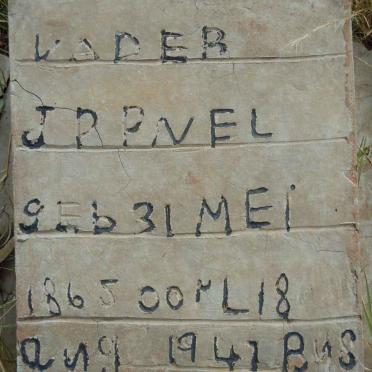 VADER
J P P NEL
geb 31 MEi
1865 OORL 18
aug 1941 BUS